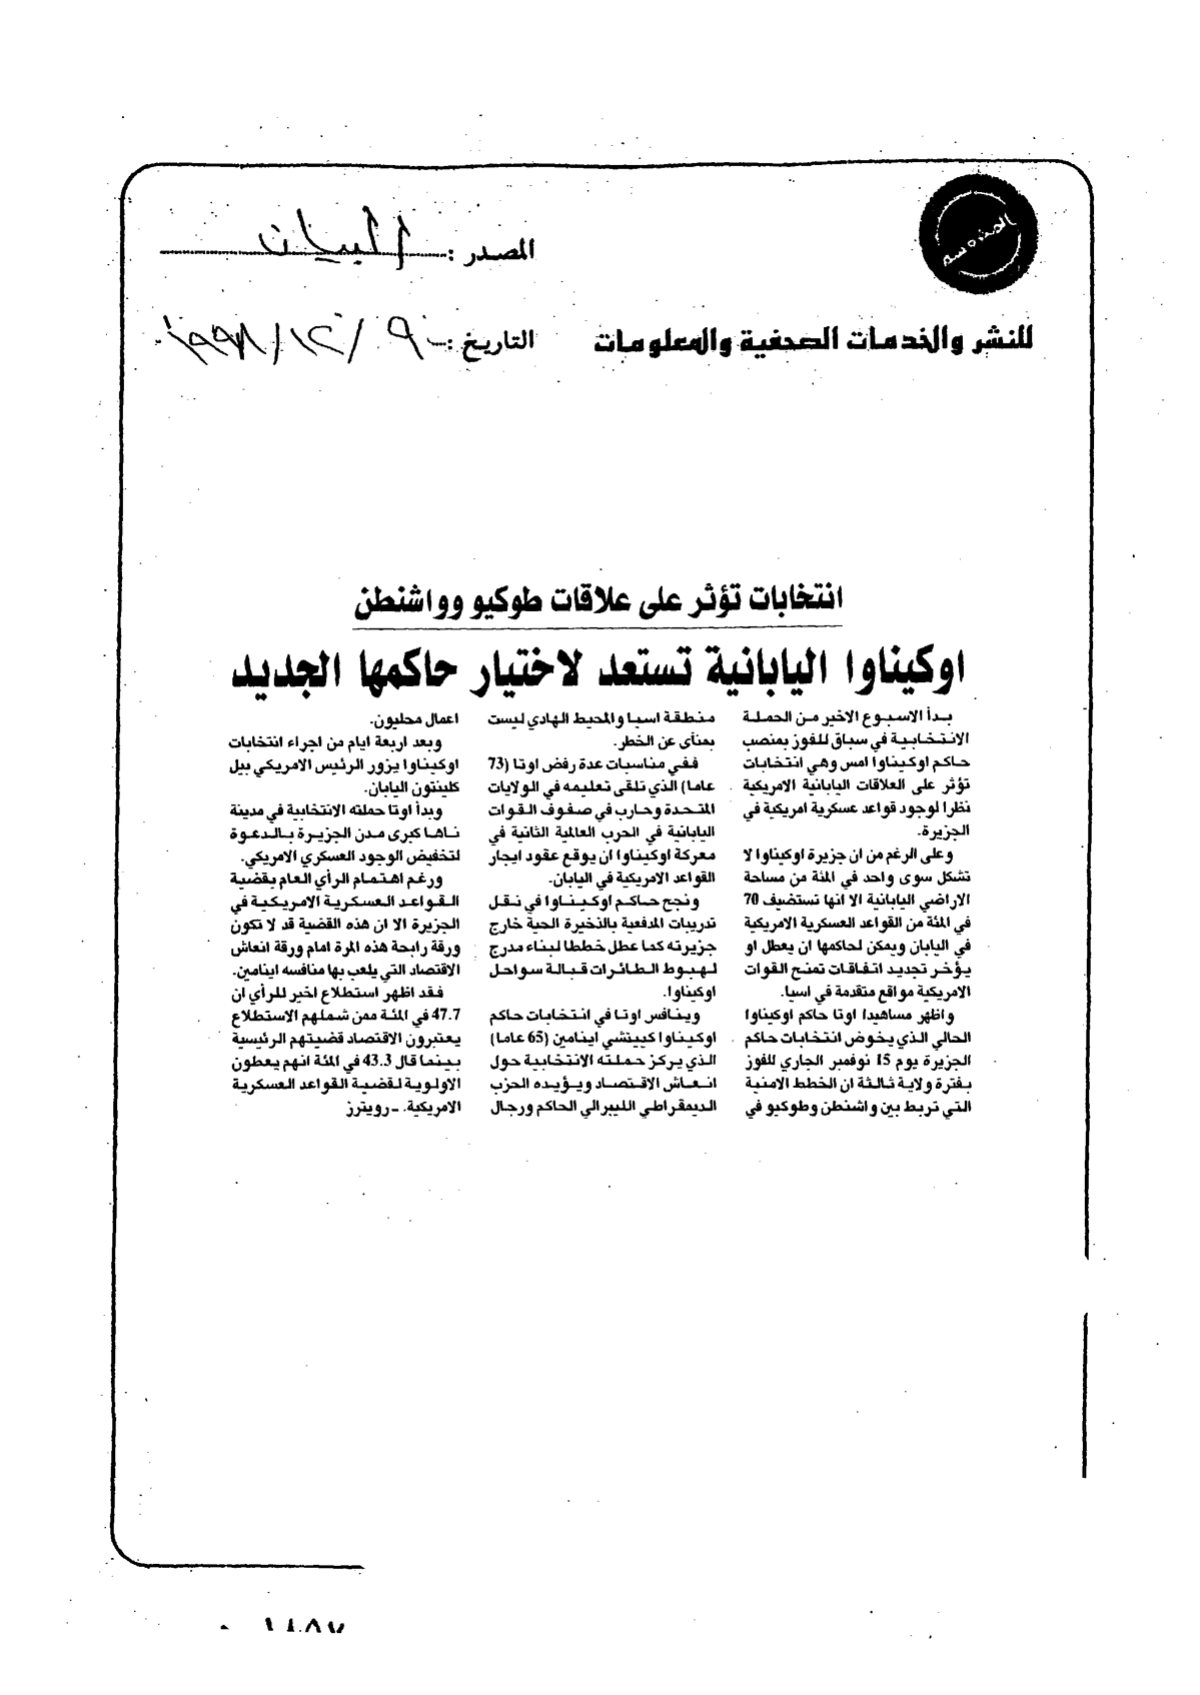 المصدر : البيان
للنشر والخدمات الصحفية والمعلومات
التاريخ :- ٩ / ١٢ / ١٩٩٨
انتخابات تؤثر على علاقات طوكيو وواشنطن
اوكيناوا اليابانية تستعد لاختيار حاكمها الجديد
بدأ الاسبوع الاخير من الحملة
الانتخابية في سباق للفوز بمنصب
حاكم اوكيناوا امس وهي انتخابات
تؤثر على العلاقات اليابانية الامريكية
نظرا لوجود قواعد عسكرية امريكية في
الجزيرة.
وعلى الرغم من ان جزيرة اوكيناوا لا
تشكل سوى واحد في المئة من مساحة
الاراضي اليابانية الا انها تستضيف 70
في المئة من القواعد العسكرية الامريكية
في اليابان ويمكن لحاكمها ان يعطل او
يؤخر تجديد اتفاقات تمنح القوات
الامريكية مواقع متقدمة في اسيا.
واظهر مساهيدا اوتا حاكم اوكيناوا
الحالي الذي يخوض انتخابات حاكم
الجزيرة يوم 15 نوفمبر الجاري للفوز
بفترة ولاية ثالثة ان الخطط الامنية
التي تربط بين واشنطن وطوكيو في
منطقة اسيا والمحيط الهادي ليست
بمنأى عن الخطر.
ففي مناسبات عدة رفض اوتا (73
عاما) الذي تلقى تعليمه في الولايات
المتحدة وحارب في صفوف القوات
اليابانية في الحرب العالمية الثانية في
معركة اوكيناوا ان يوقع عقود ايجار
القواعد الامريكية في اليابان.
ونجح حاكم اوكيناوا في نقل
تدريبات المدفعية بالذخيرة الحية خارج
جزيرته كما عطل خططا لبناء مدرج
لهبوط الطائرات قبالة سواحل
اوكيناوا.
وينافس اوتا في انتخابات حاكم
اوكيناوا كييتشي اينامين (65 عاما)
الذي يركز حملته الانتخابية حول
انعاش الاقتصاد ويؤيده الحزب
الديمقراطي الليبرالي الحاكم ورجال
اعمال محليون.
وبعد اربعة ايام من اجراء انتخابات
اوكيناوا يزور الرئيس الامريكي بيل
كلينتون اليابان.
وبدأ اوتا حملته الانتخابية في مدينة
ناها كبرى مدن الجزيرة بالدعوة
لتخفيض الوجود العسكري الامريكي.
ورغم اهتمام الرأي العام بقضية
القواعد العسكرية الامريكية في
الجزيرة الا ان هذه القضية قد لا تكون
ورقة رابحة هذه المرة امام ورقة انعاش
الاقتصاد التي يلعب بها منافسه اينامين.
فقد اظهر استطلاع اخير للرأي ان
47.7 في المئة ممن شملهم الاستطلاع
يعتبرون الاقتصاد قضيتهم الرئيسية
بينما قال 43.3 في المئة انهم يعطون
الاولوية لقضية القواعد العسكرية
الامريكية. ـ رويترز